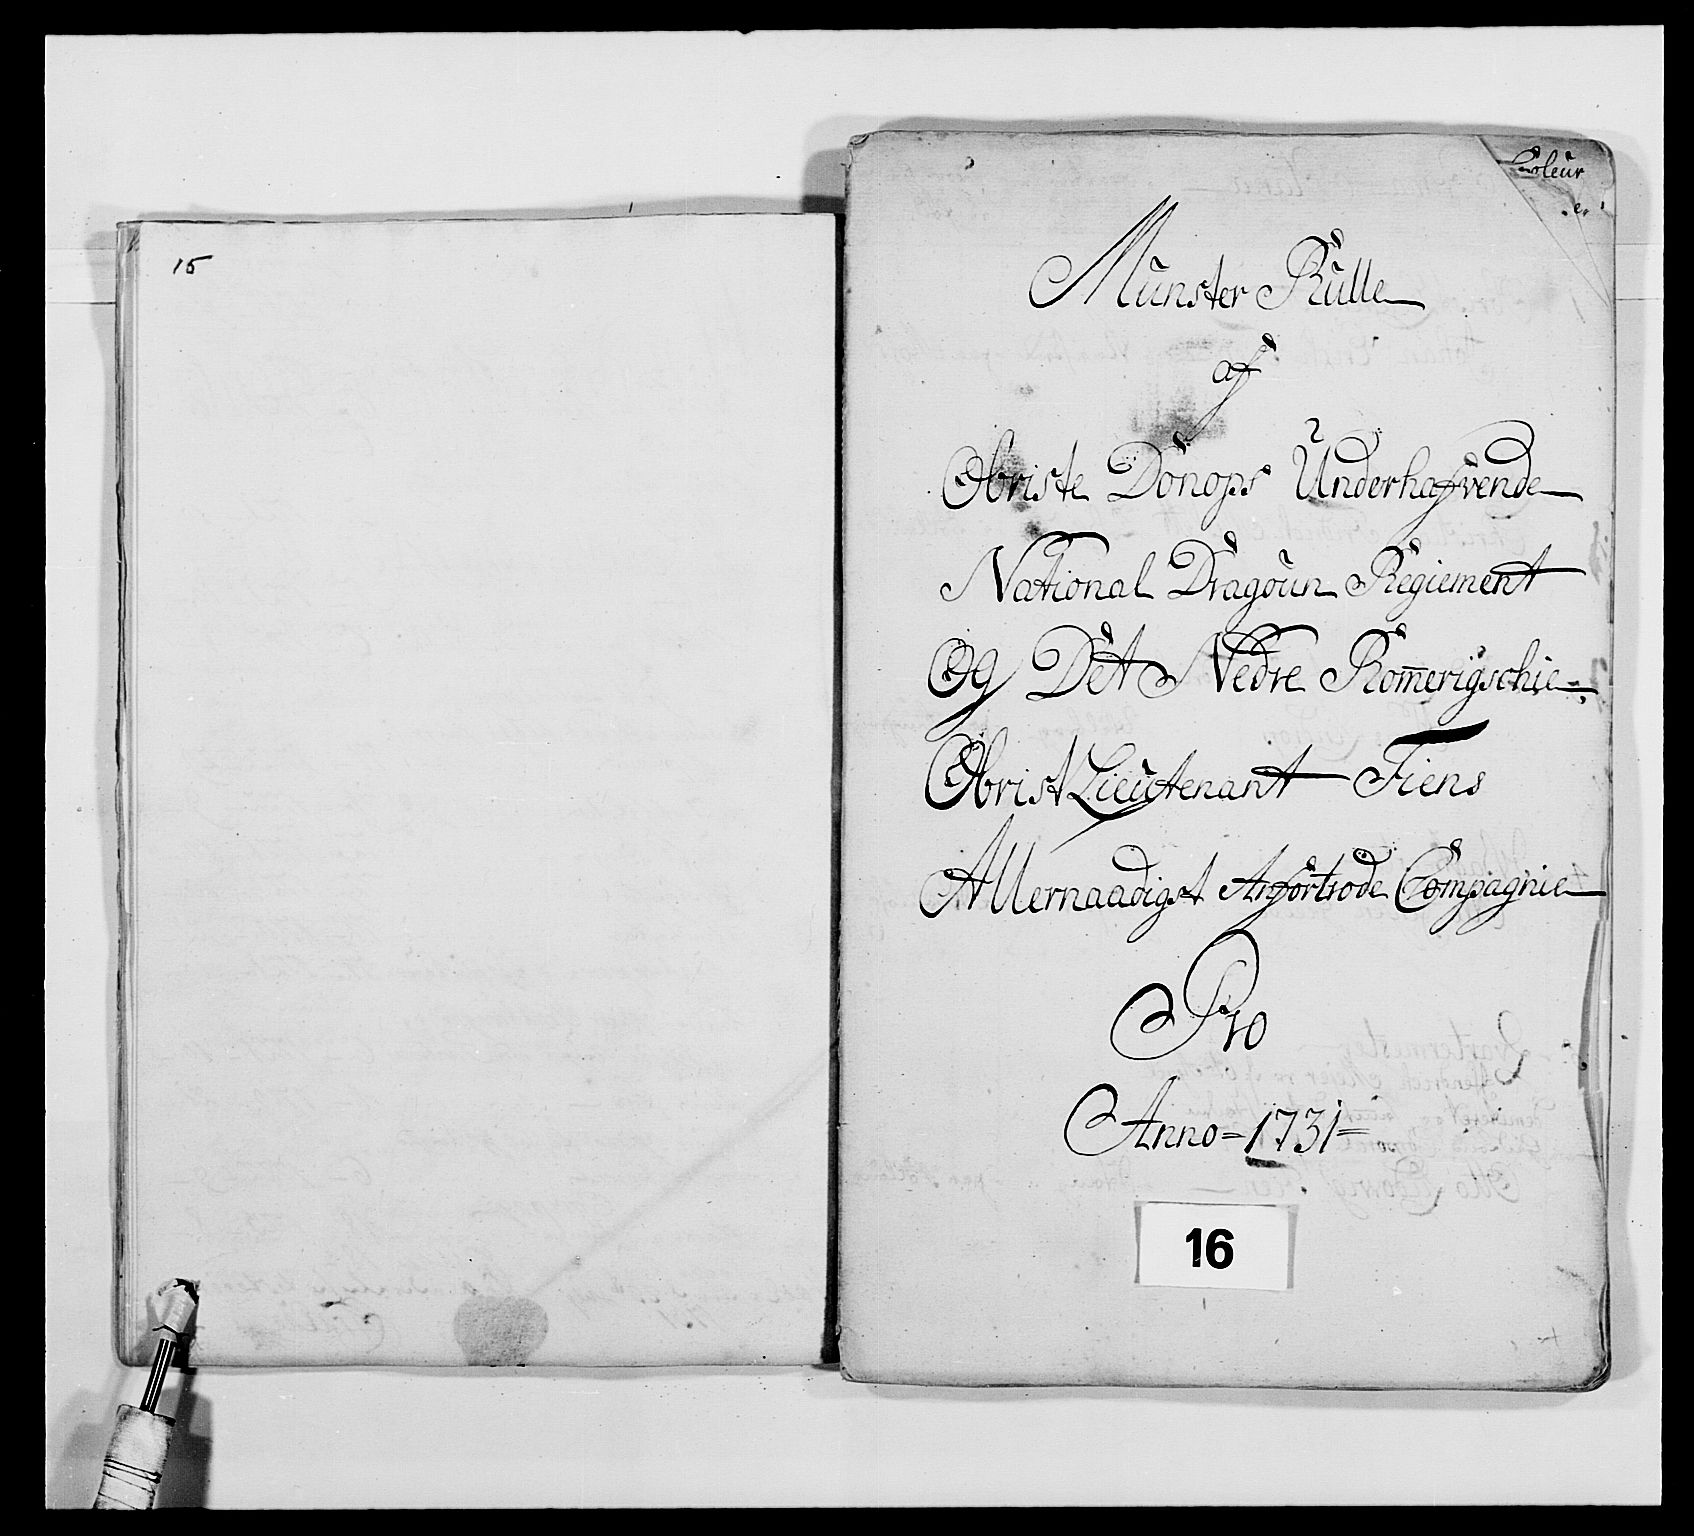 15
Coleur
Munster Rulle
af
Obriste Donops Underhafvende
National Dragoun Regiement
Og Det Nedre Romerigschie
Obrist Lieutenant Fiens
Allernaadigst Anfortrode Compagnie
Pro
Anno = 1731 =
16